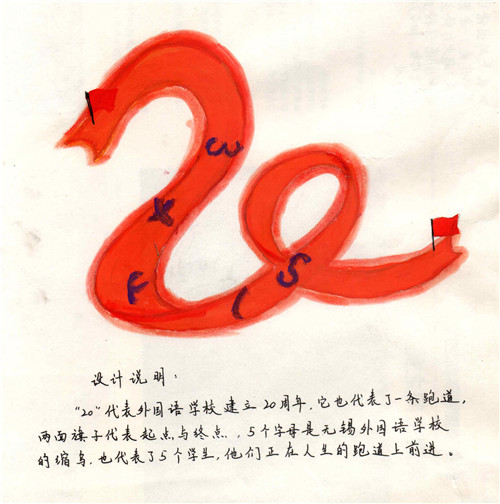 W
X
F
L
S
设计说明：
“20”代表外国语学校建立20周年．它也代表了一条跑道，
两面旗子代表起点与终点．，5个字母是无锡外国语学校
的缩写．也代表了5个学生，他们正在人生的跑道上前进。